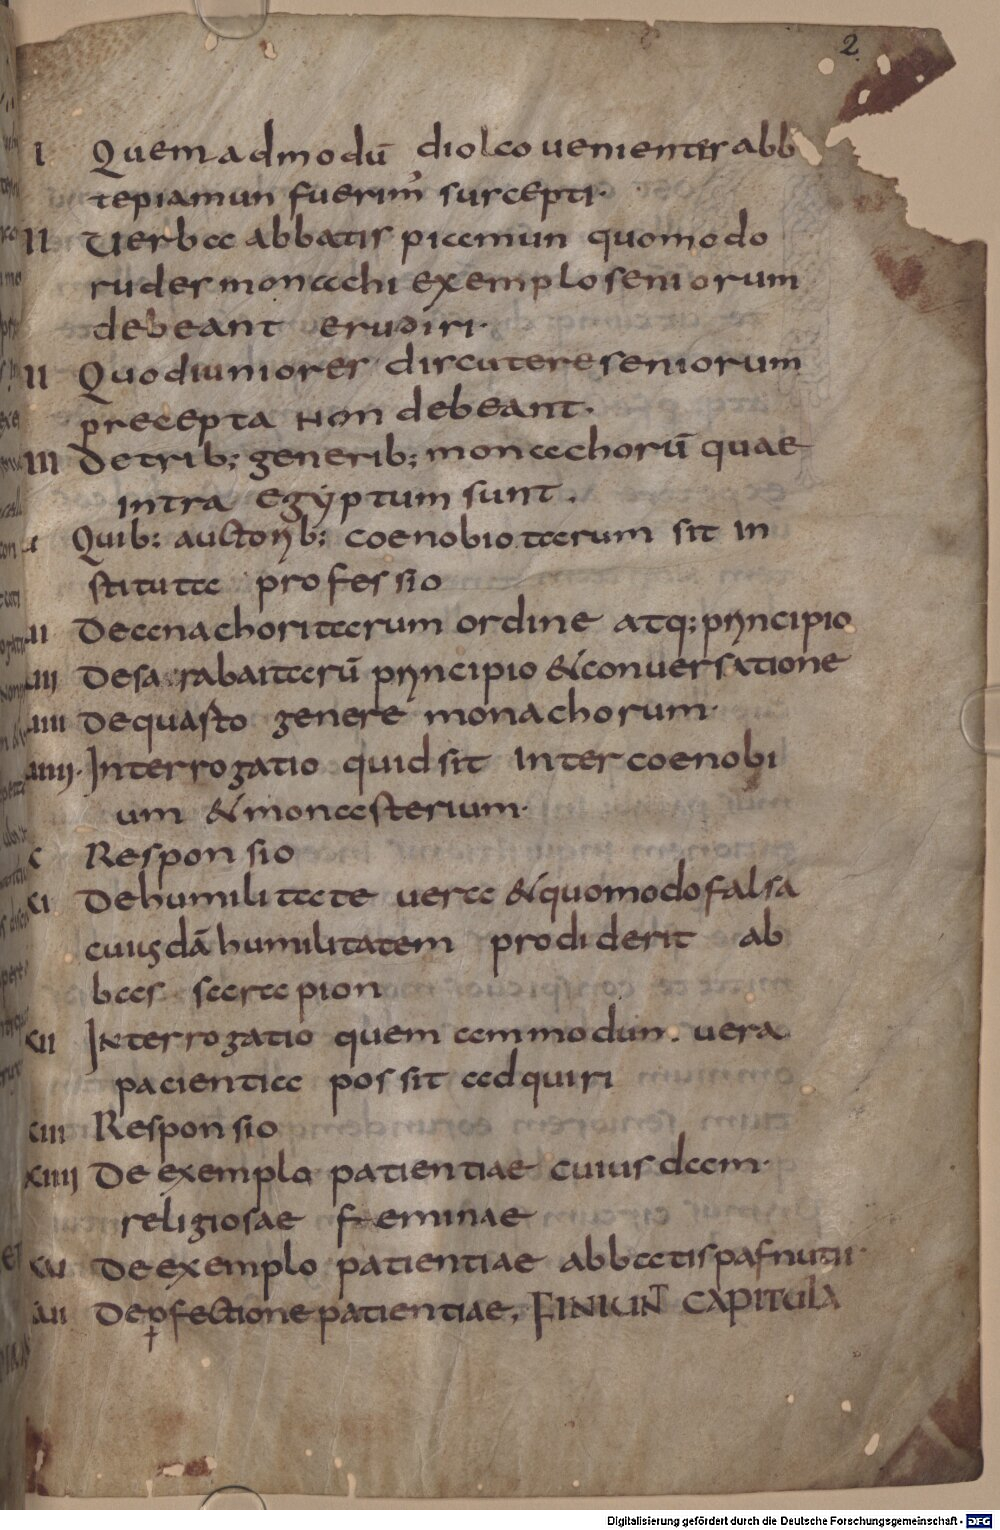 2
I Quemadmodū diolco uenientes abb
te piamun fuerim' suscepti·
II Uerba abbatis piamun quomodo
rudes monachi exemplo seniorum
debeant erudiri·
II Quod iuniores discutere seniorum
precepta non debeant·
IIII De trib; generib; monachorū quae
intra egyptum sunt.
Quib; auctorib; coenobiotarum sit in
stituta professio
UI De anachoritarum ordine atq; principio
UII De sarabaitarū principio & conuersatione
UIII De quarto genere monachorum·
UIIII· Interrogatio quid sit inter coenobi
um & monasterium·
X Responsio
XI De humilitate uera & quomodo falsa
cuiusdā humilitatem prodiderit ab
bas sarapion
XII Interrogatio quem ammodum uera
pacientia possit adquiri
XIII Responsio
XIIII De exemplo patientiae cuiusdam·
religiosae feminae
XU De exemplo patientiae abbatis pafnutii·
XUI De pfectione patientiae, FINIUNT CAPITULA
Digitalisierung gefördert durch die Deutsche Forschungsgemeinschaft - DFG